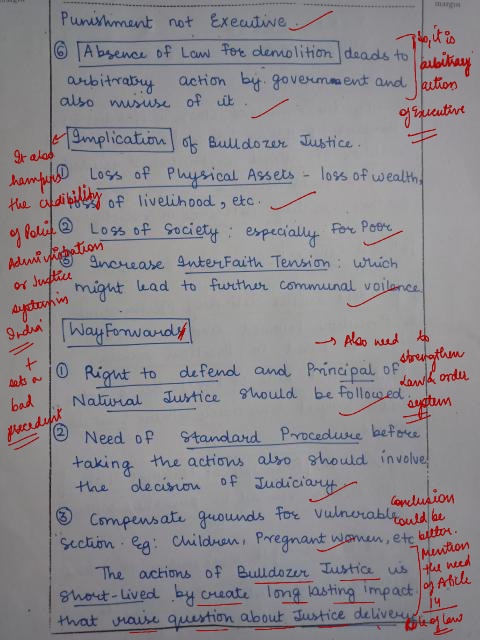 margin
margin
Punishment not Executive.
⑥ Absence of Law for demolition deads to
arbitratry action by government and
also misuse of it.
So, it is
arbitrary
action
of Executive
Implication of Bulldozer Justice.
① Loss of Physical Assets - loss of wealth,
loss of livelihood, etc.
② Loss of Society : especially for Poor
③ Increase InterFaith Tension : which
might lead to further communal voilence
It also
hampers
the credibility
of Police
Administration
or Justice
system in
India
+
sets a
bad
precedent
Way Forwards
→ Also need to
strengthen
Law & order
system
① Right to defend and Principal of
Natural Justice should be followed.
② Need of Standard Procedure before
taking the actions also should involve
the decision of Judiciary.
③ Compensate grounds for vulnerable
section. Eg: Children, Pregnant women, etc
Conclusion
could be
better.
Mention
the need
of Article
14
Rule of law
The actions of Bulldozer Justice is
short-lived by create long lasting impact
that raise question about Justice delivery